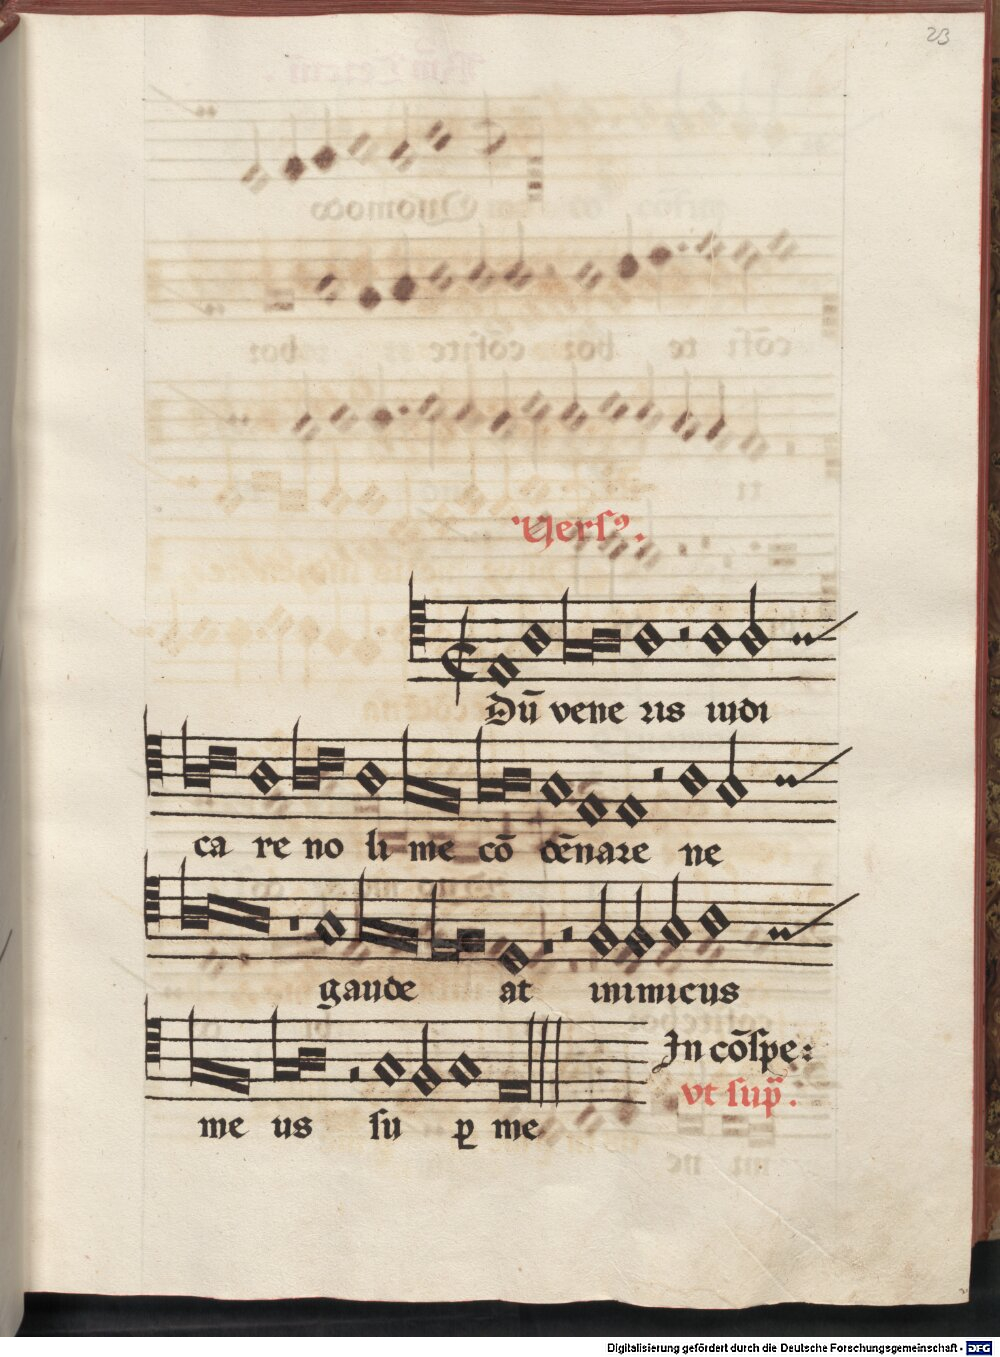 23
Versꝰ.
Dū vene ris iudi
ca re no li me cō dēnare ne
gaude at inimicus
me us su ꝑ me
In cōspe:
vt sup̄.
Digitalisierung gefördert durch die Deutsche Forschungsgemeinschaft - DFG